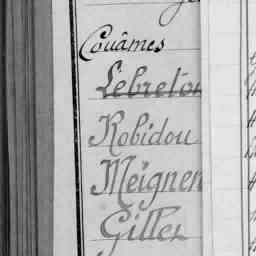 Couâmes
Lebreton
Robidou
Meignen
Gilles